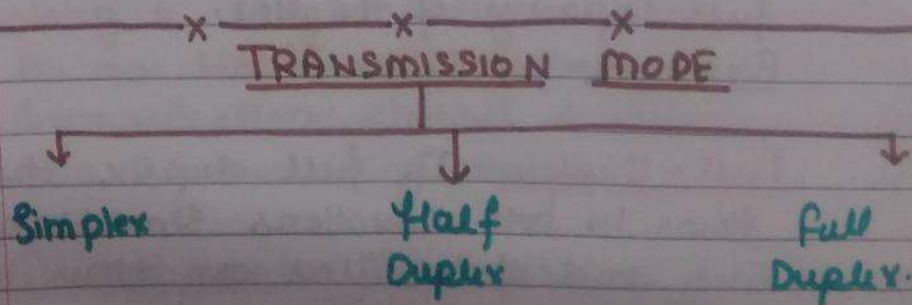 TRANSMISSION MODE
Simplex
Half
Duplex
Full
Duplex.